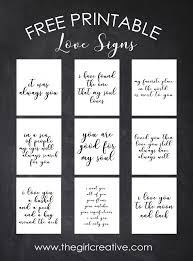 FREE PRINTABLE
Love Signs
it was
always you
i have found
the one
that my soul
loves
my favorite place
in the world
is next to you
in a sea of
people my
eyes will always
search for you
you are
good for
my soul
loved you then
love you still
always have
always will
i love you
a bushel
and a peck
and a hug
around the neck
i want you
all of you
your flaws
your mistakes
i love you
to the moon
and back
www.thegirlcreative.com